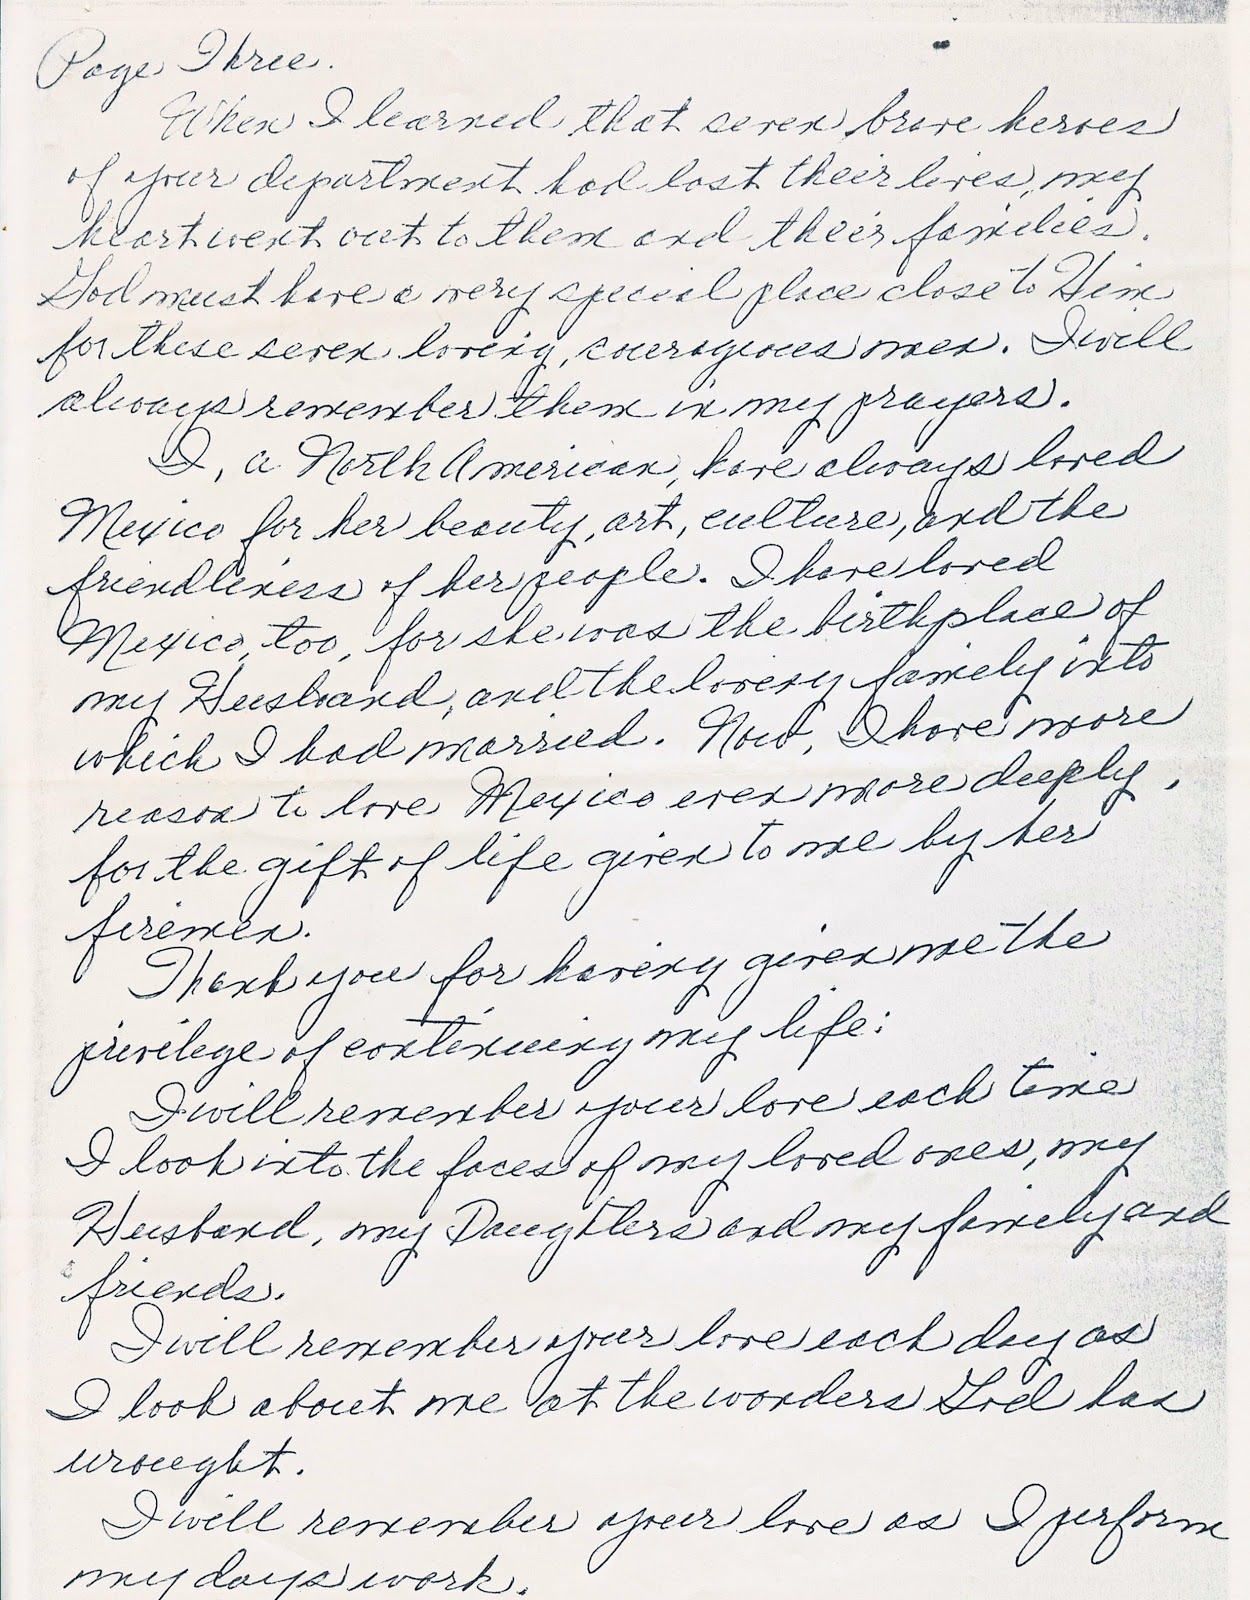 Page Three.
When I learned that seven brave heroes
of your department had lost their lives, my
heart went out to them and their families.
God must have a very special place close to Him
for these seven loving, courageous men. I will
always remember them in my prayers.
I, a North American, have always loved
Mexico for her beauty, art, culture, and the
friendliness of her people. I have loved
Mexico, too, for she was the birthplace of
my Husband, and the loving family into
which I had married. Now, I have more
reason to love Mexico even more deeply,
for the gift of life given to me by her
firemen.
Thank you for having given me the
privilege of continuing my life:
I will remember your love each time
I look into the faces of my loved ones, my
Husband, my Daughters and my family and
friends.
I will remember your love each day as
I look about me at the wonders God has
wrought.
I will remember your love as I perform
my days work.